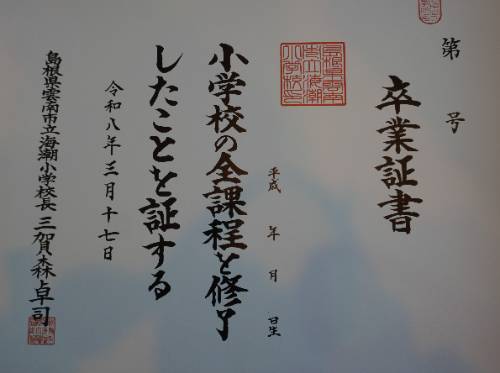 卒業証書
第 号
島根県雲南市立海潮小学校印
平成 年 月 日生
小学校の全課程を修了
したことを証する
令和八年三月十七日
島根県雲南市立海潮小学校長 三賀森卓司